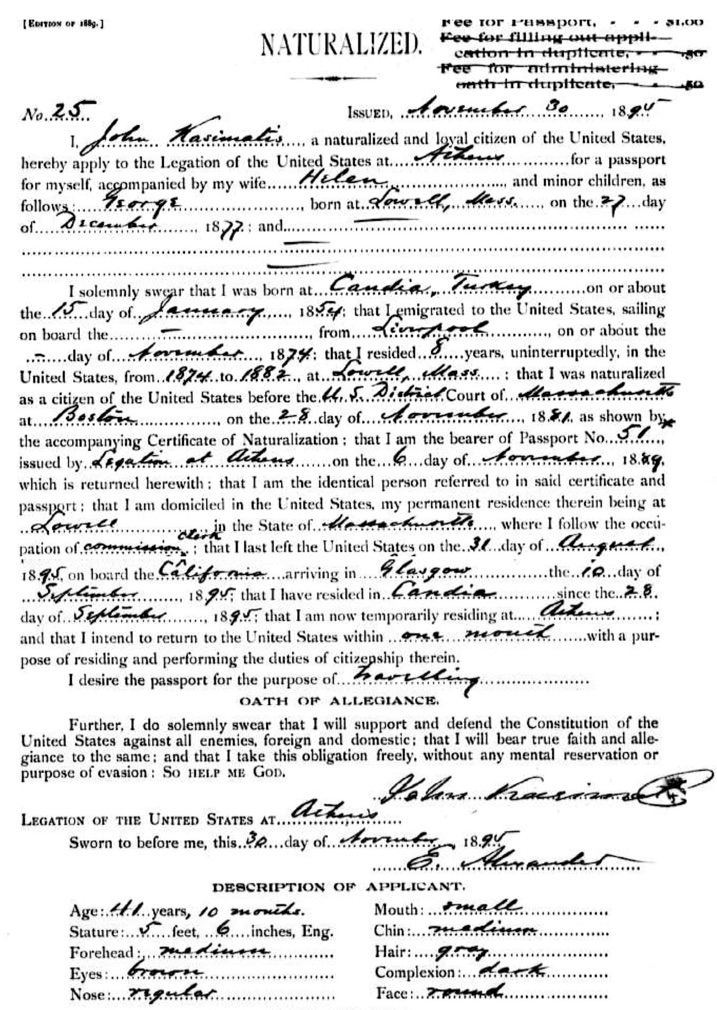 [EDITION OF 1889.]
Fee for Passport, - - - $1.00
Fee for filling out appli-
cation in duplicate, - - .50
Fee for administering
oath in duplicate, - - .50
NATURALIZED.
No. 25. ISSUED, November 30, 1895
I, John Kasimatis, a naturalized and loyal citizen of the United States,
hereby apply to the Legation of the United States at Athens for a passport
for myself, accompanied by my wife Helen, and minor children, as
follows: George, born at Lowell, Mass., on the 27 day
of December, 1877; and
I solemnly swear that I was born at Candia, Turkey on or about
the 15 day of January, 1854; that I emigrated to the United States, sailing
on board the —, from Liverpool, on or about the
— day of November, 1874; that I resided 8 years, uninterruptedly, in the
United States, from 1874 to 1882, at Lowell, Mass.; that I was naturalized
as a citizen of the United States before the U. S. District Court of Massachusetts
at Boston, on the 28 day of November, 1881, as shown by
the accompanying Certificate of Naturalization; that I am the bearer of Passport No. 51,
issued by Legation at Athens on the 6 day of November, 1889,
which is returned herewith; that I am the identical person referred to in said certificate and
passport; that I am domiciled in the United States, my permanent residence therein being at
Lowell in the State of Massachusetts, where I follow the occu-
pation of commission clerk; that I last left the United States on the 31 day of August,
1895, on board the California arriving in Glasgow the 10 day of
September, 1895, that I have resided in Candia since the 28
day of September, 1895; that I am now temporarily residing at Athens;
and that I intend to return to the United States within one month with a pur-
pose of residing and performing the duties of citizenship therein.
I desire the passport for the purpose of travelling
OATH OF ALLEGIANCE.
Further, I do solemnly swear that I will support and defend the Constitution of the
United States against all enemies, foreign and domestic; that I will bear true faith and alle-
giance to the same; and that I take this obligation freely, without any mental reservation or
purpose of evasion: SO HELP ME GOD.
John
LEGATION OF THE UNITED STATES AT Athens
Sworn to before me, this 30 day of November, 1895
E. Alexander
DESCRIPTION OF APPLICANT.
Age: 41 years, 10 months. Mouth: small
Stature: 5 feet, 6 inches, Eng. Chin: medium
Forehead: medium Hair: gray
Eyes: brown Complexion: dark
Nose: regular Face: round